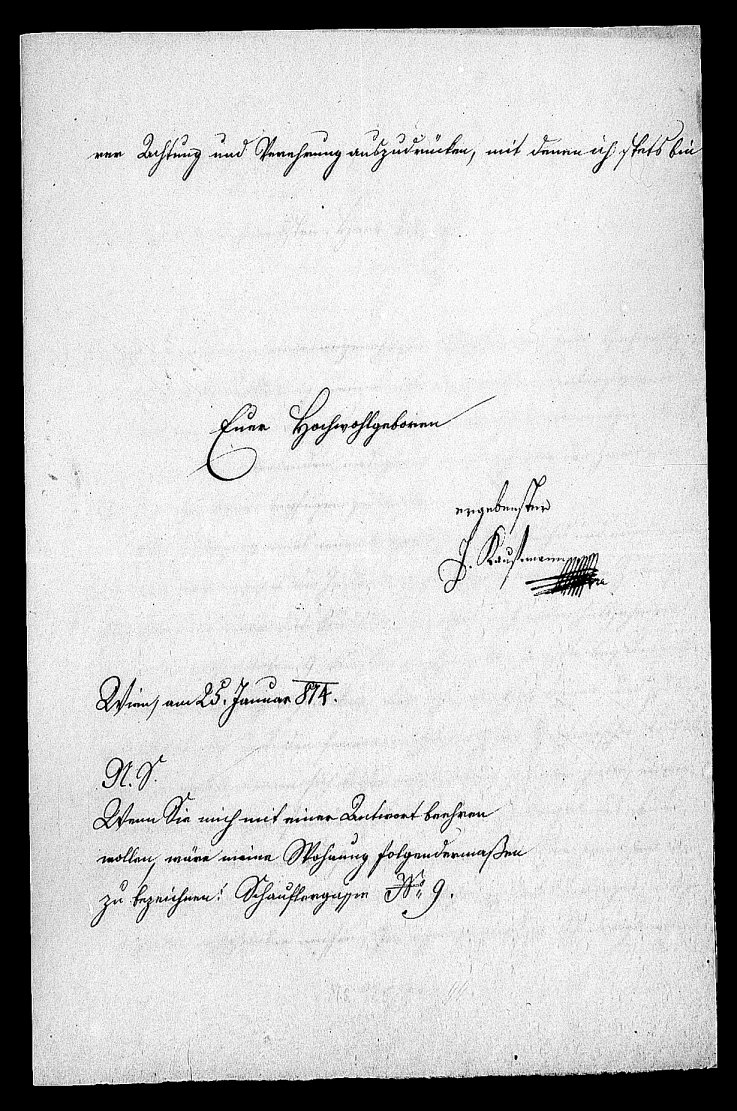 rer Achtung und Verehrung auszudrücken, mit denen ich stets bin
Euer Hochwohlgeboren
ergebenster
J. Kaufmann
Wien, am 25. Januar 874.
N. S.
Wenn Sie mich mit einer Antwort beehren
wollen, wäre meine Wohnung folgendermaßen
zu bezeichnen: Schauflergasse No 9